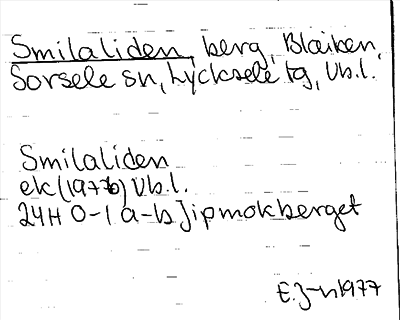 Smilaliden, berg, Blaiken,
Sorsele sn, Lycksele tg, Vb.l.
Smilaliden
ek (1976) Vb.l.
24H 0-1 a-b Jipmokberget
E.J-n 1977